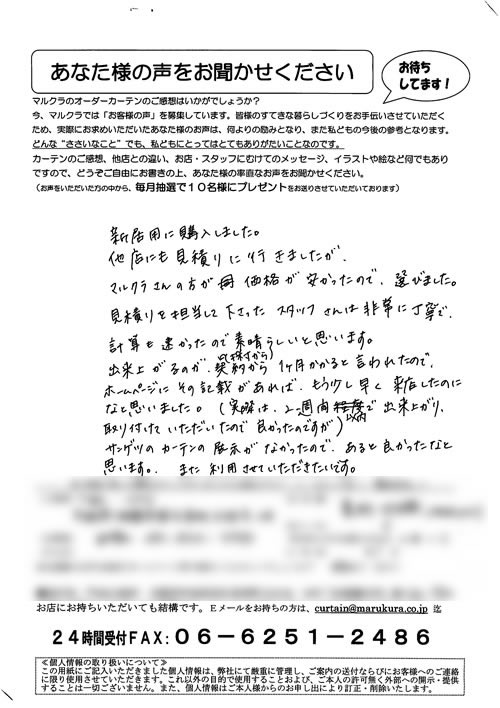 あなた様の声をお聞かせください
お待ち
してます!
マルクラのオーダーカーテンのご感想はいかがでしょうか?
今、マルクラでは「お客様の声」を募集しています。皆様のすてきな暮らしづくりをお手伝いさせていただく
ため、実際にお求めいただいたあなた様のお声は、何よりの励みとなり、また私どもの今後の参考となります。
どんな“ささいなこと”でも、私どもにとってはとてもありがたいことなのです。
カーテンのご感想、他店との違い、お店・スタッフにむけてのメッセージ、イラストや絵など何でもあり
ですので、どうぞご自由にお書きの上、あなた様の率直なお声をお聞かせください。
(お声をいただいた方の中から、毎月抽選で10名様にプレゼントをお送りさせていただいております)
新居用に購入しました。
他店にも見積りに行きましたが、
マルクラさんの方が価格が安かったので、選びました。
見積りを担当して下さったスタッフさんは非常に丁寧で、
計算も速かったので素晴らしいと思います。
出来上がるのが、契約から(採寸から)1ヶ月かかると言われたので、
ホームページにその記載があれば、もう少し早く来店したのに
なと思いました。(実際は、2週間以内で出来上がり、
取り付けていただいたので良かったのですが)
サンゲツのカーテンの展示がなかったので、あると良かったなと
思います。また利用させていただきたいです。
お店にお持ちいただいても結構です。Eメールをお持ちの方は、curtain@marukura.co.jp 迄
24時間受付FAX:06-6251-2486
≪個人情報の取り扱いについて≫
この用紙にご記入いただきました個人情報は、弊社にて厳重に管理し、ご案内の送付ならびにお客様へのご連絡
に限り使用させていただきます。これ以外の目的で使用することおよび、ご本人の許可無く外部への開示・提供
することは一切ございません。また、個人情報はご本人様からのお申し出により訂正・削除いたします。